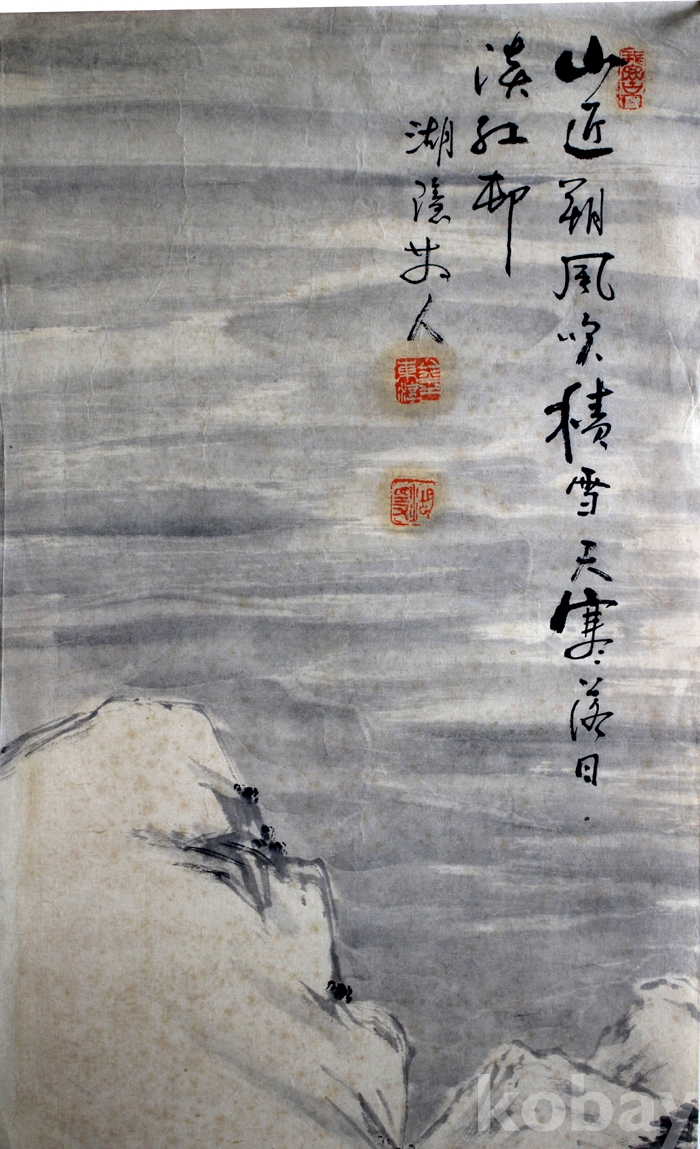 山近朔風吹積雪天寒落日
淡紅邨
湖隱散人
kobay